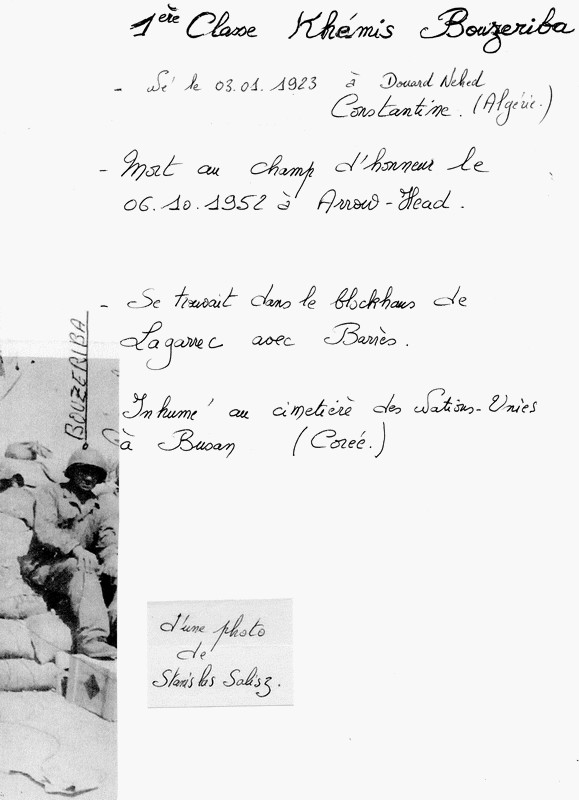 1ère Classe Khémis Bouzeriba
- Né le 03.01.1923 à Douard Nehed
Constantine. (Algérie.)
- Mort au champ d'honneur le
06.10.1952 à Arrow-Head.
- Se trouvait dans le blockhaus de
Lagarrec avec Barrès.
Inhumé au cimetière des Nations-Unies
à Busan (Corée.)
BOUZERIBA
d'une photo
de
Stanislas Salisz.